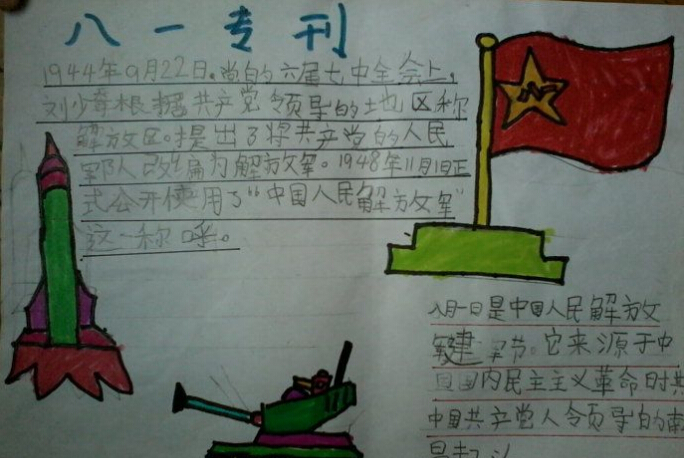 八一专刊
1944年9月22日。党的六届七中全会上，
刘少奇根据共产党领导的地区称
解放区。提出了将共产党的人民
部队改编为解放军。1948年11月1日正
式公开使用了“中国人民解放军”
这一称呼。
八一
八月一日是中国人民解放
军建军节。它来源于中
国国内民主主义革命时共
中国共产党人领导的南